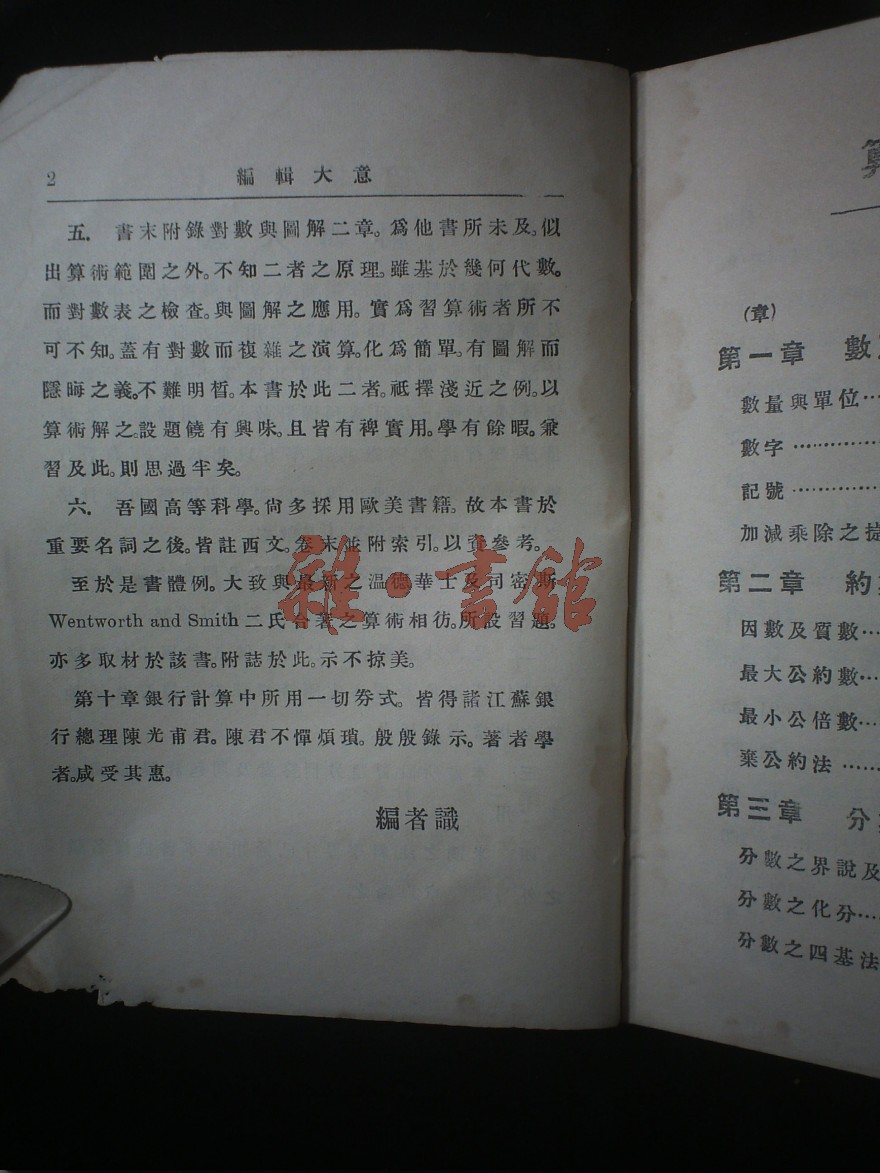 2 編輯大意
五. 書末附錄對數與圖解二章。爲他書所未及。似
出算術範圍之外。不知二者之原理。雖基於幾何代數。
而對數表之檢查。與圖解之應用。實爲習算術者所不
可不知。蓋有對數而複雜之演算。化爲簡單。有圖解而
隱晦之義。不難明晳。本書於此二者。祗擇淺近之例。以
算術解之。設題饒有興味。且皆有裨實用。學有餘暇。兼
習及此。則思過半矣。
六. 吾國高等科學。尙多採用歐美書籍。故本書於
重要名詞之後。皆註西文。卷末並附索引。以資參考。
至於是書體例。大致與最新之温德華士及司密斯
Wentworth and Smith 二氏合著之算術相彷。所設習題。
亦多取材於該書。附誌於此。示不掠美。
第十章銀行計算中所用一切券式。皆得諸江蘇銀
行總理陳光甫君。陳君不憚煩瑣。殷殷錄示。著者學
者。咸受其惠。
編者識
雜·書館
算
(章)
第一章 數
數量與單位…
數字…………
記號…………
加減乘除之
第二章 約
因數及質數…
最大公約數…
最小公倍數…
棄公約法……
第三章 分
分數之界說及
分數之化分…
分數之四基法